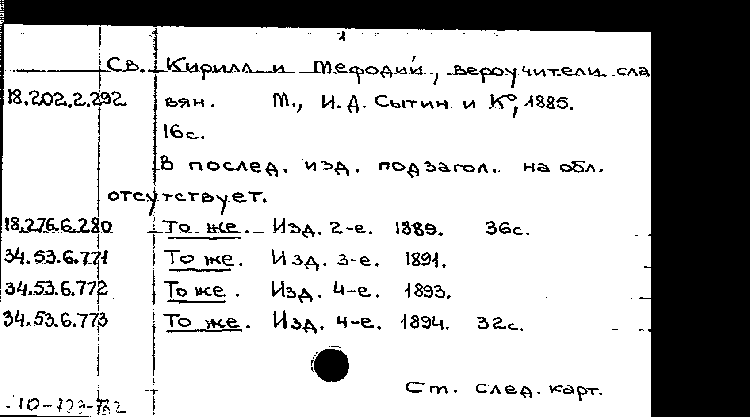 1
Св. Кирилл и Мефодий, вероучители сла
18.202.2.292 вян. М., И.Д. Сытин и К°, 1885.
16с.
В послед. изд. подзагол. на обл.
отсутствует.
18.276.6.280 То же. Изд. 2-е. 1889. 36с.
34.53.6.771 То же. Изд. 3-е. 1891.
34.53.6.772 То же. Изд. 4-е. 1893.
34.53.6.773 То же. Изд. 4-е. 1894. 32с.
См. след. карт.